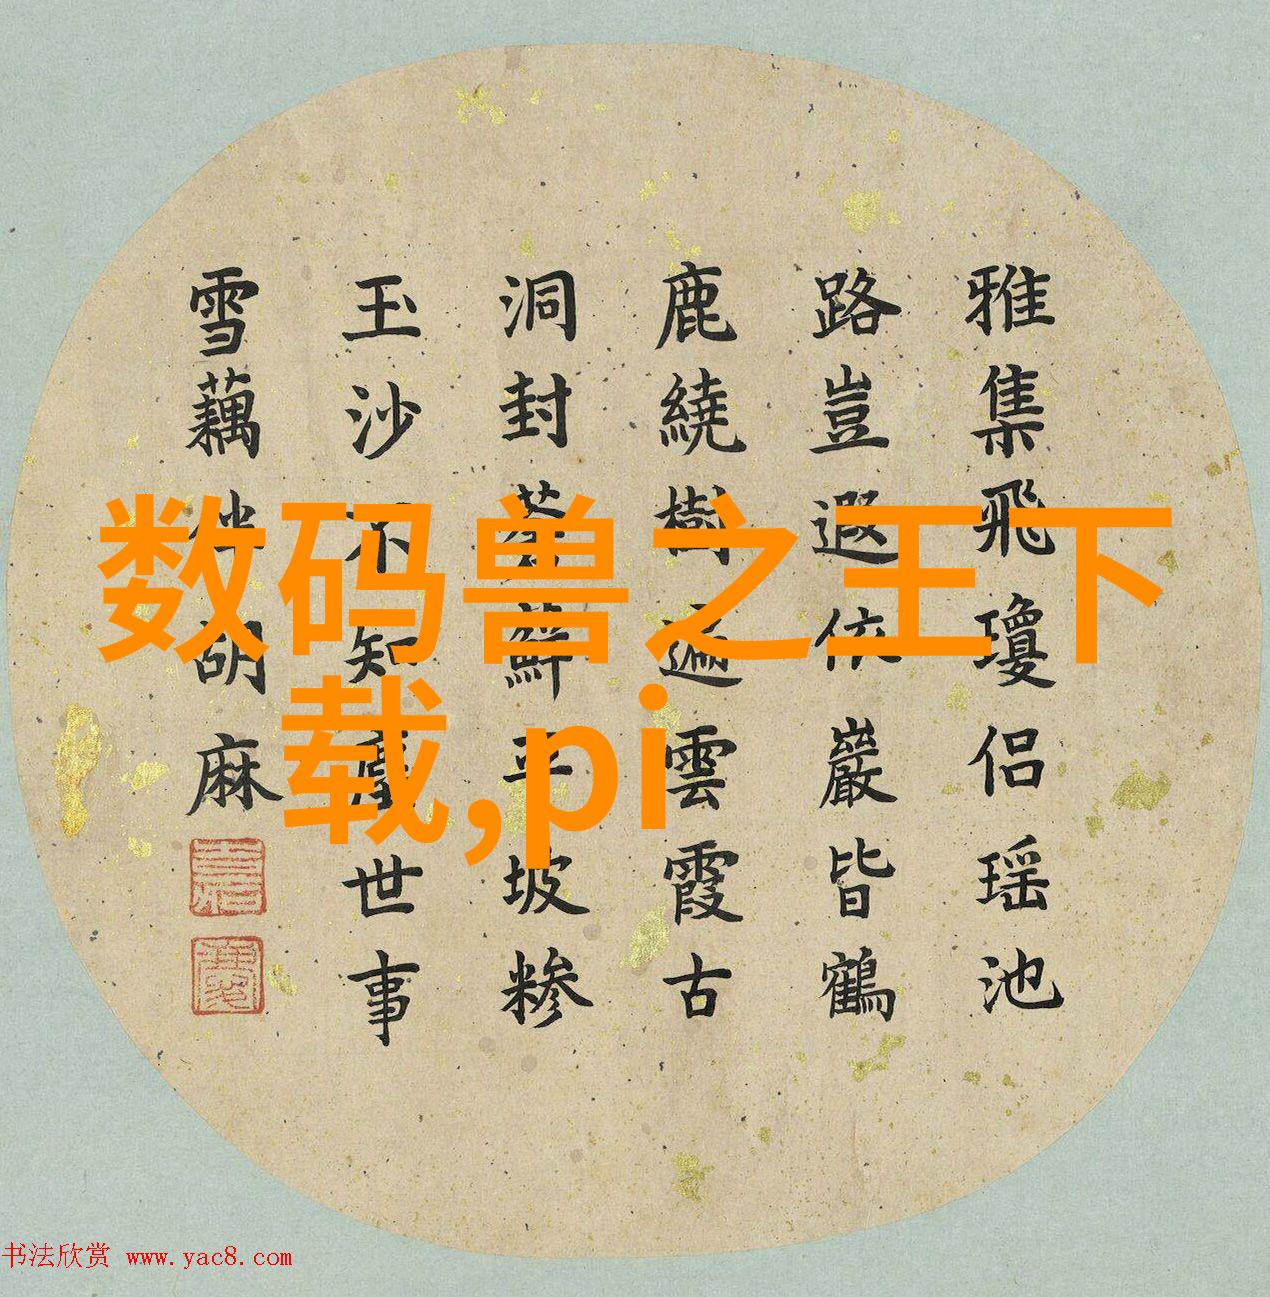 雅集飛瓊侶瑶池
路豈遐依巖皆鶴
鹿繞樹遍雲霞古
洞封蘚平坡糁
玉沙不知世事
雪藕伴胡麻
数码兽之王下
载,pi
书法欣赏 www.yac8.com